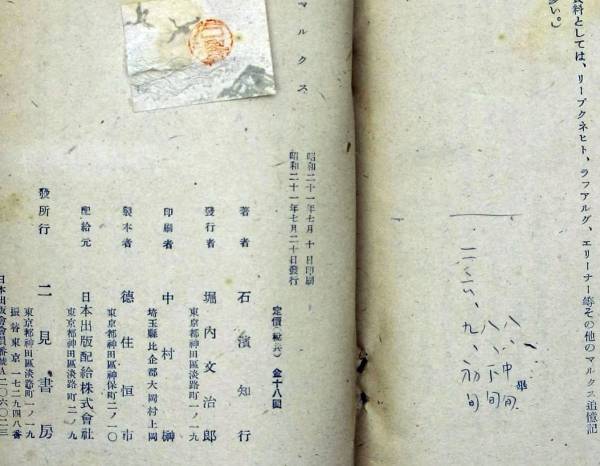 料としては、リープクネヒト、ラフアルグ、エリーナー等その他のマルクス追憶記
多い。）
八、中旬
八、下旬
九、初旬
マルクス
昭和二十一年七月 十 日印刷
昭和二十一年七月二十日發行
定價(稅共) 金十八圓
著者 石濱知行
發行者 堀内文治郎
東京都神田區淡路町一ノ一九
印刷者 中村榊
埼玉縣比企郡大岡村上岡
製本者 德住恒市
東京都神田區神保町二ノ一〇
配給元 日本出版配給株式會社
東京都神田區淡路町二ノ九
發所行 二見書房
東京都神田區淡路町一ノ一九
振替東京一七二九四八番
日本出版會會員番號A二〇六〇二三